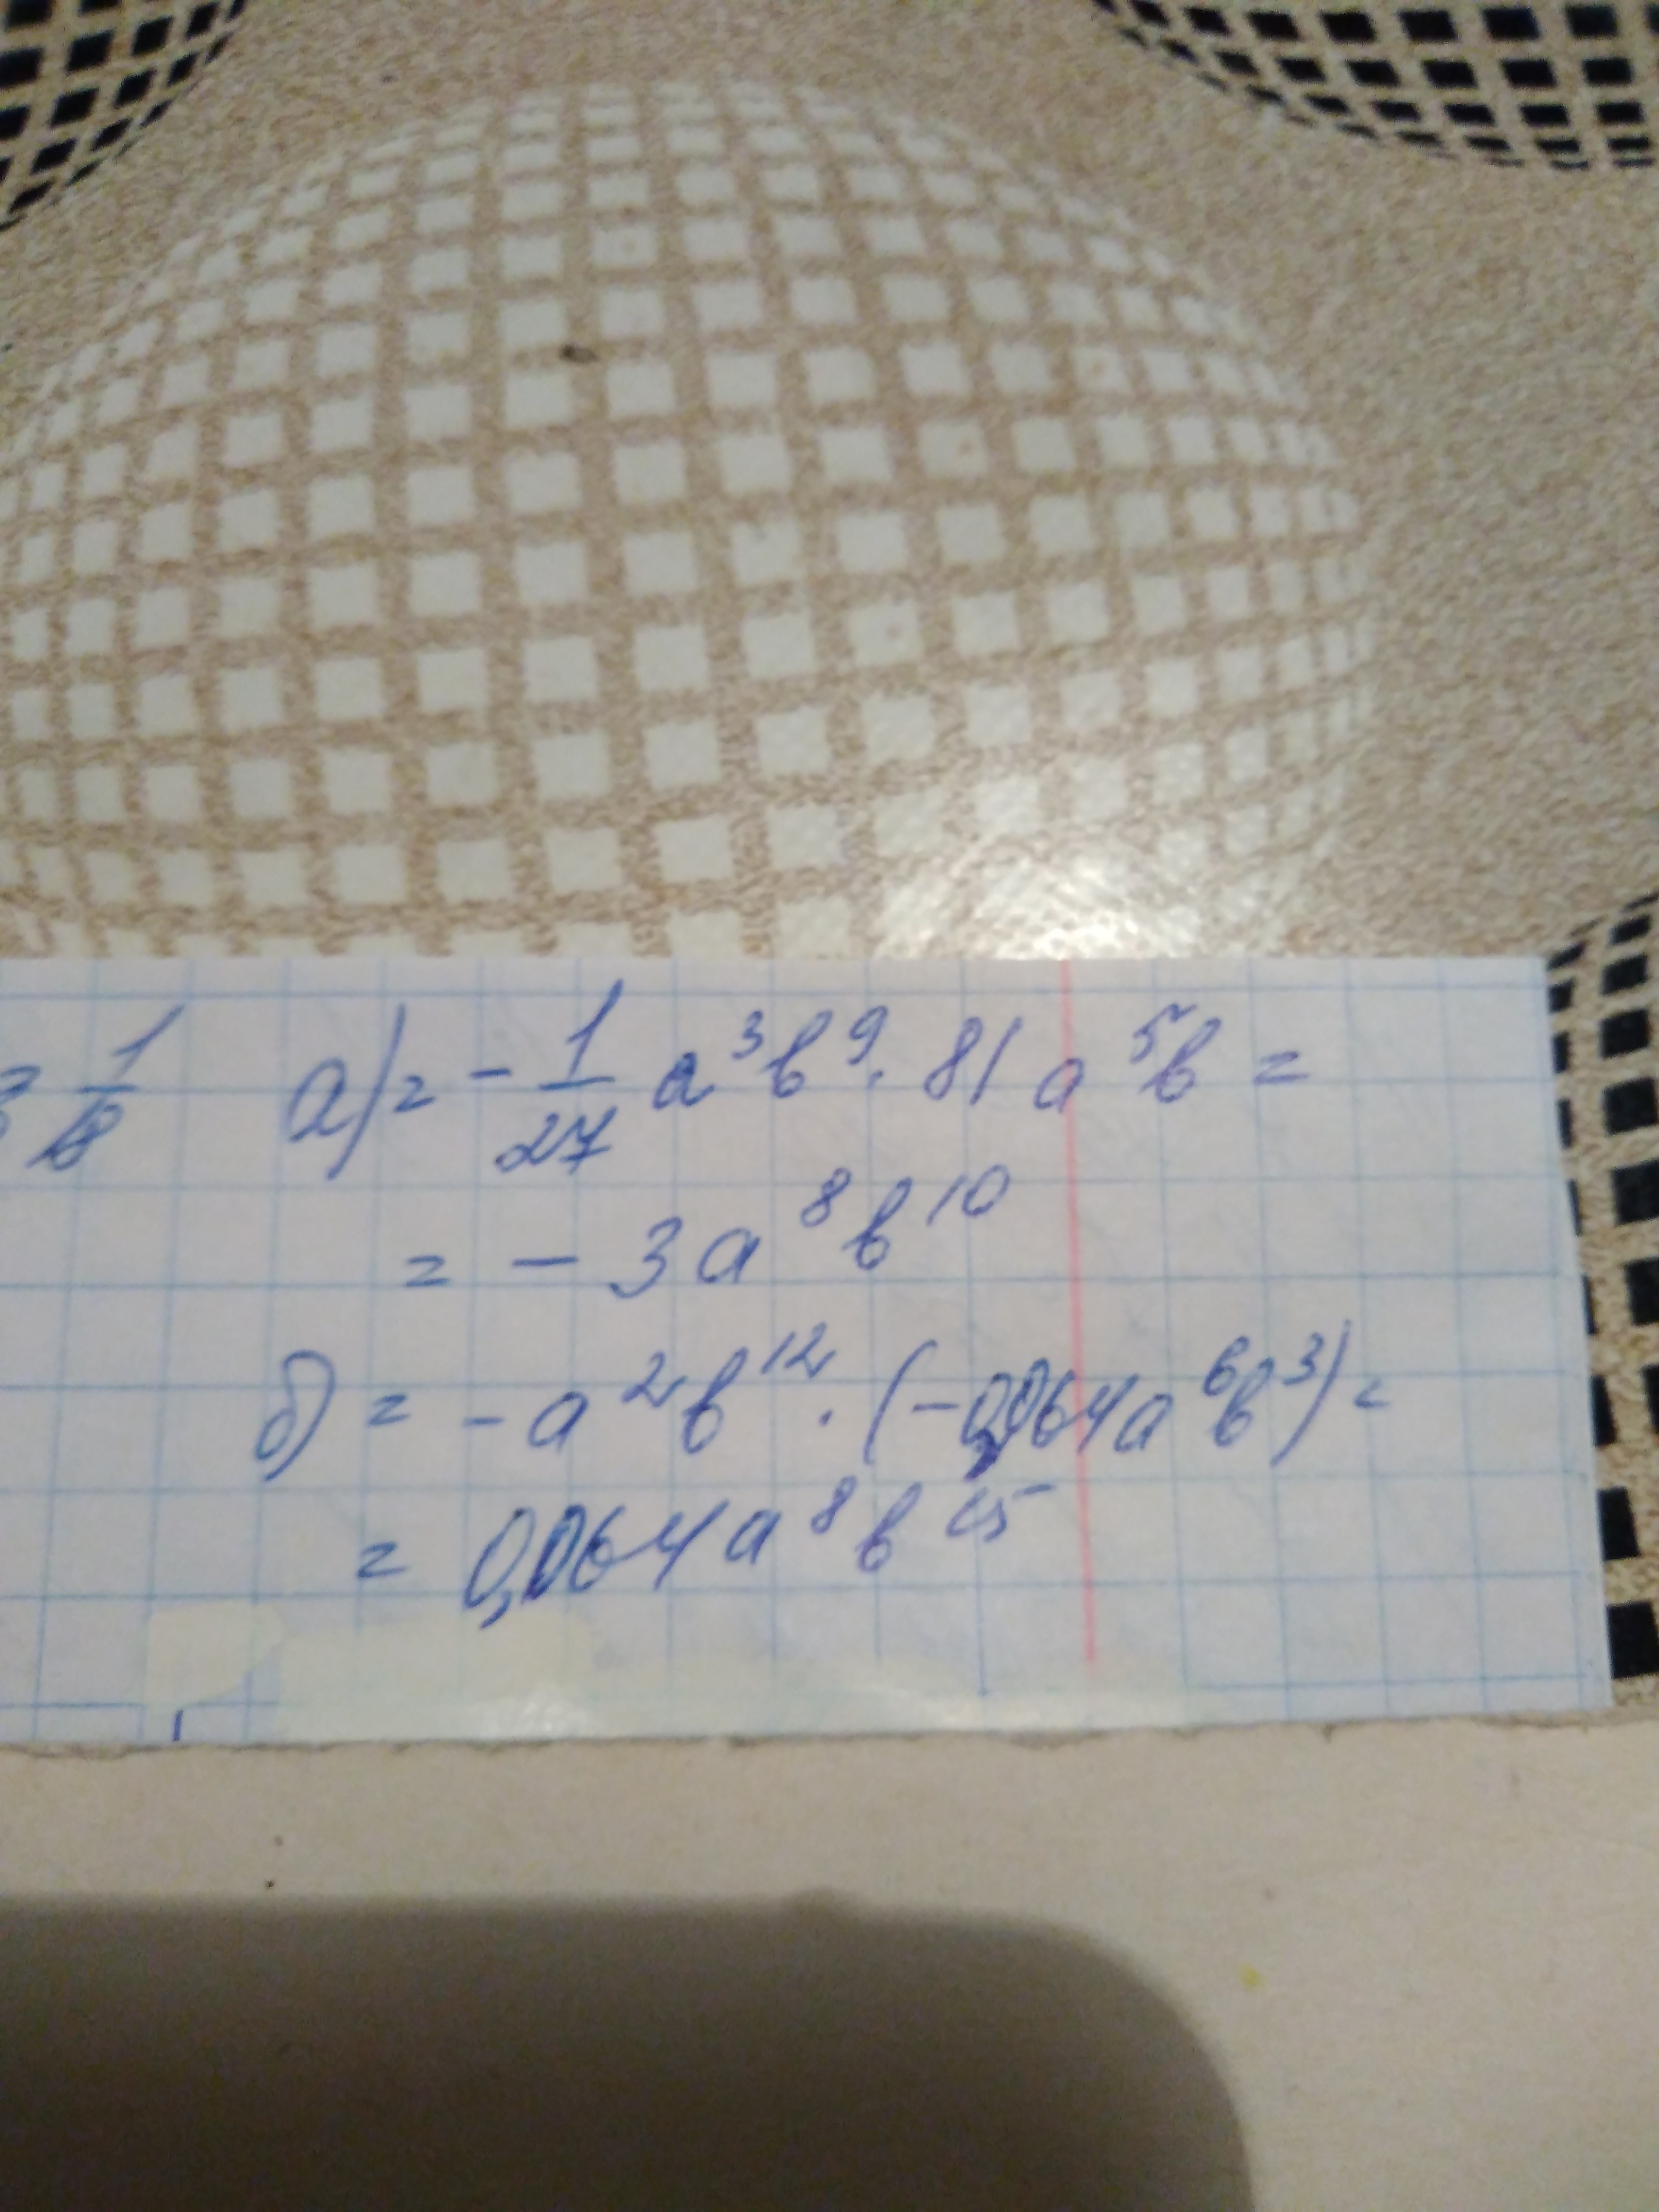 = 1/8 а) = - 1/27 a³b⁹ · 81 a⁵b =
= - 3a⁸b¹⁰
б) = - a²b¹² · (-0,064a⁶b³) =
= 0,064a⁸b¹⁵